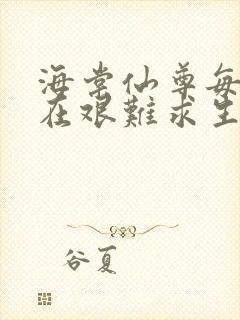 海棠仙尊每
在艰難求生
谷夏